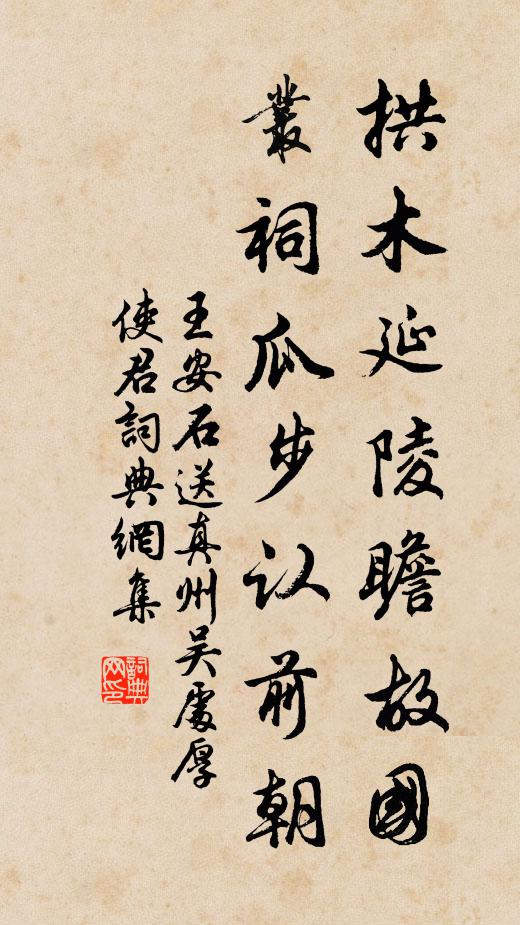 拱木延陵瞻故國
叢祠瓜步认前朝
王安石送真州吴處厚
使君詞典網集
詞典网印